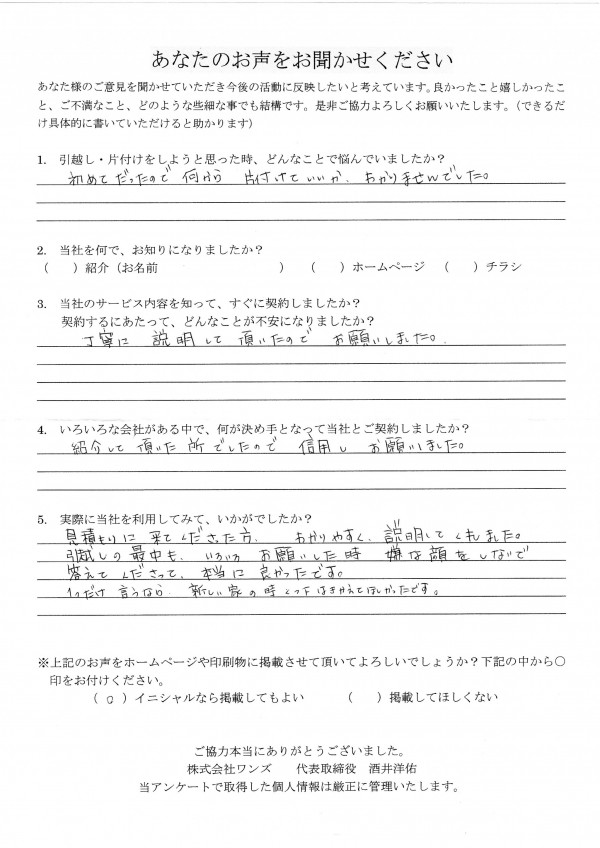 あなたのお声をお聞かせください
あなた様のご意見を聞かせていただき今後の活動に反映したいと考えています。良かったこと嬉しかったこ
と、ご不満なこと、どのような些細な事でも結構です。是非ご協力よろしくお願いいたします。（できるだ
け具体的に書いていただけると助かります）
1. 引越し・片付けをしようと思った時、どんなことで悩んでいましたか？
初めてだったので 何から 片付けていいか、わかりませんでした。
2. 当社を何で、お知りになりましたか？
（　）紹介（お名前　　　　　　　　　）（　）ホームページ（　）チラシ
3. 当社のサービス内容を知って、すぐに契約しましたか？
契約するにあたって、どんなことが不安になりましたか？
丁寧に 説明して 頂いたので お願いしました。
4. いろいろな会社がある中で、何が決め手となって当社とご契約しましたか？
紹介して 頂いた 所でしたので 信用し お願いしました。
5. 実際に当社を利用してみて、いかがでしたか？
見積もりに 来てくださった方、わかりやすく、説明してくれました。
引越しの最中も、いろいろ お願いした時 嫌な顔をしないで
答えてくださって、本当に 良かったです。
1つだけ 言うなら、新しい家の時 くつ下はきかえてほしかったです。
※上記のお声をホームページや印刷物に掲載させて頂いてよろしいでしょうか？下記の中から○
印をお付けください。
（ ○ ）イニシャルなら掲載してもよい　　（　）掲載してほしくない
ご協力本当にありがとうございました。
株式会社ワンズ　代表取締役　酒井洋佑
当アンケートで取得した個人情報は厳正に管理いたします。